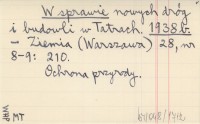 W sprawie nowych dróg
i budowli w Tatrach. 1938 b.
– Ziemia (Warszawa) 28, nr
8-9: 210.
Ochrona przyrody.
WHP MT